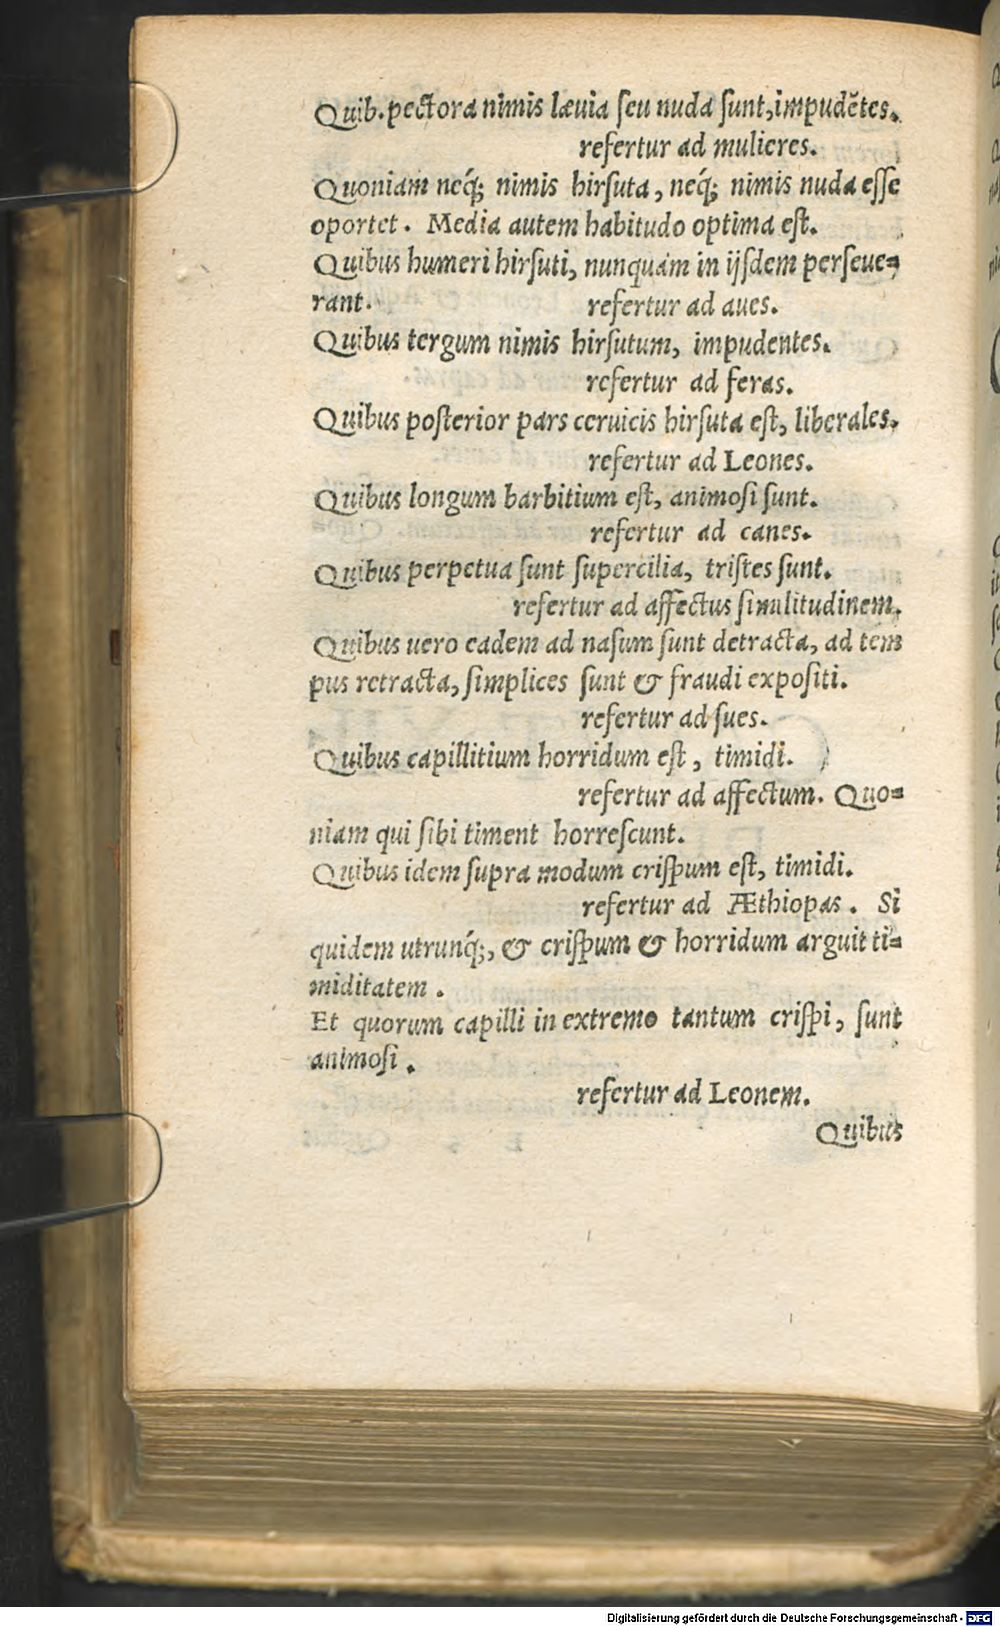 Quib. pectora nimis læuia ſeu nuda ſunt, impudẽtes.
refertur ad mulieres.
Quoniam neq́; nimis hirſuta, neq́; nimis nuda eſſe
oportet. Media autem habitudo optima eſt.
Quibus humeri hirſuti, nunquam in ijſdem perſeue=
rant. refertur ad aues.
Quibus tergum nimis hirſutum, impudentes.
refertur ad feras.
Quibus poſterior pars ceruicis hirſuta eſt, liberales.
refertur ad Leones.
Quibus longum barbitium eſt, animoſi ſunt.
refertur ad canes.
Quibus perpetua ſunt ſupercilia, triſtes ſunt.
refertur ad affectus ſimilitudinem.
Quibus uero eadem ad naſum ſunt detracta, ad tem
pus retracta, ſimplices ſunt & fraudi expoſiti.
refertur ad ſues.
Quibus capillitium horridum eſt, timidi.
refertur ad affectum. Quo=
niam qui ſibi timent horreſcunt.
Quibus idem ſupra modum criſpum eſt, timidi.
refertur ad Æthiopas. Si
quidem utrunq́;, & criſpum & horridum arguit ti=
miditatem.
Et quorum capilli in extremo tantum criſpi, ſunt
animoſi.
refertur ad Leonem.
Quibus
Digitalisierung gefördert durch die Deutsche Forschungsgemeinschaft - DFG